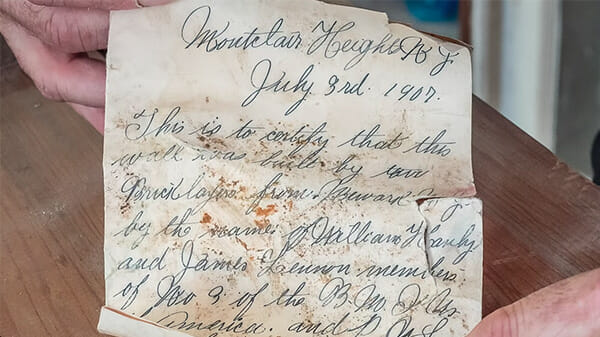 Montclair Heights N.J.
July 3rd. 1907.
This is to certify that this
wall was built by two
Bricklayers from Newark N.J.
by the names of William Hanly
and James Lennon members
of No 3 of the B.M.I.U.
America. and